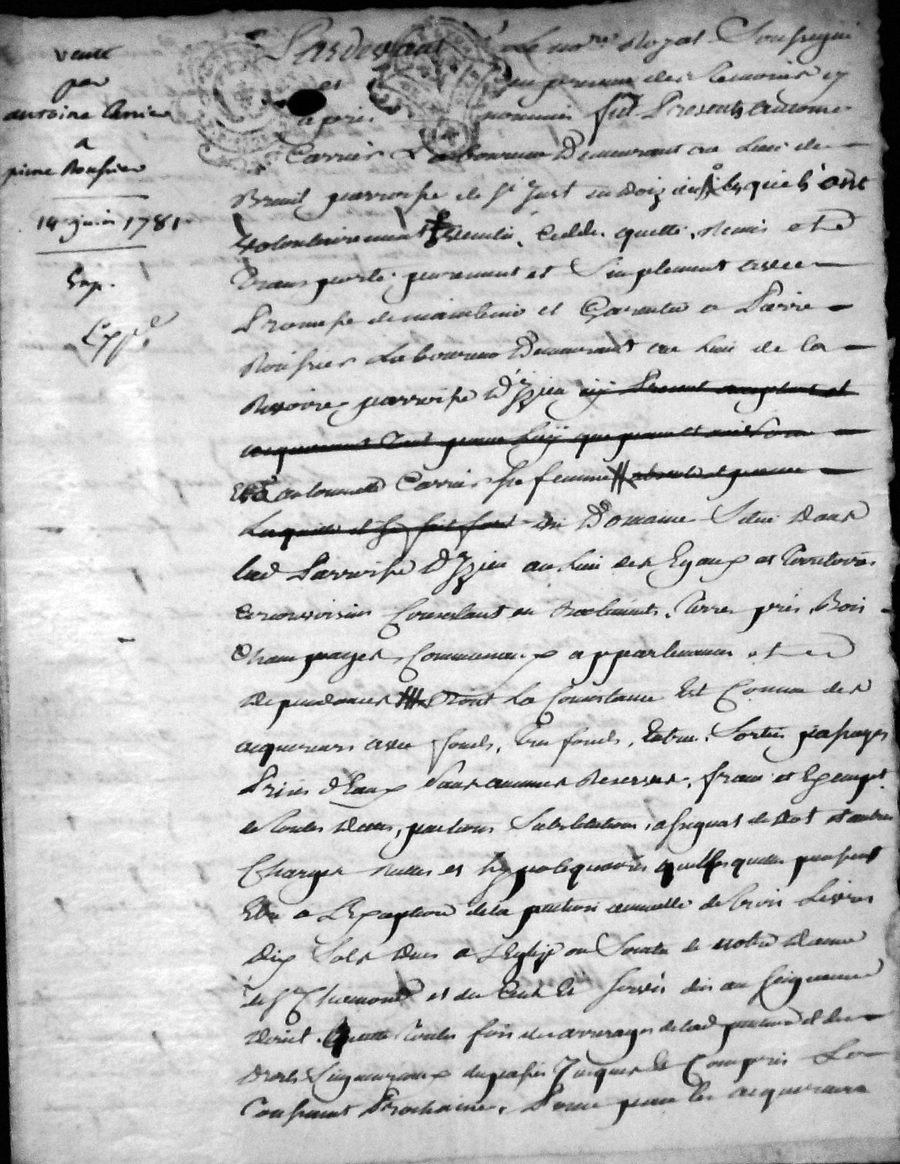 vente
par
antoine Carrier
a
pierre
14 juin 1781
Exp.
Expe.
Pardevant le no.re Royal Soussigné
et en presence des Temoins cy
apres nommés fut Present Antoine
Carrier Laboureur Demeurant au Lieu de
Breuil parroisse de St Just en Doizieu lesquels ont
Volontairement Vendu, Ceddé, quitté, Remis et
Transporté, purement et Simplement avec
Promesse de maintenir et Garantir a Pierre
Laboureur Demeurant au Lieu de la
Rivoire parroisse D'Izieu
Carrier sa femme
un Domaine Situé Dans
lad. Parroisse D'Izieu au Lieu des Egaux et Territoires
circonvoisins Consistant en Batiments, Terres, prés, Bois
Champeages Communaux appartenances et
Dependances Dont la Consistance Est Connue des
acquereurs avec fonds, Tres fonds, Entrées, Sorties, passages
Prises d'Eaux Sans aucunes Reserves, francs et Exempts
de Toutes Dettes, pentions Substitutions, et autres
Charges et hypotequaires quelles quelles puissent
Etre a L'Exeption de la pention annuelle de trois Livres
Dix Sols Dues a L'Eglise ou Societé de notre Dame
de St Chamond et du Cens et Servis dus au Seigneur
Direct. quitte Toutes fois des arrerages de lad. pention et des
Droits Seigneuriaux du passé Jusques et Compris La
Prochaine, Pour par les acquereurs